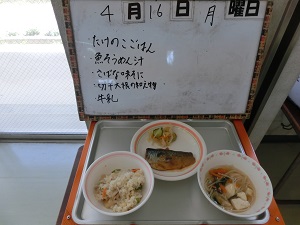 4月16日 月曜日
・たけのこごはん
・魚そうめん汁
・さばな味そに
・切干大根の和え物
・牛乳